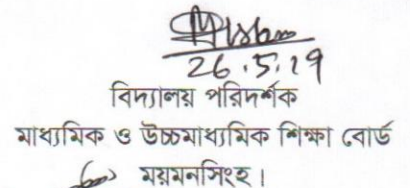 26.5.19
বিদ্যালয় পরিদর্শক
মাধ্যমিক ও উচ্চমাধ্যমিক শিক্ষা বোর্ড
ময়মনসিংহ।